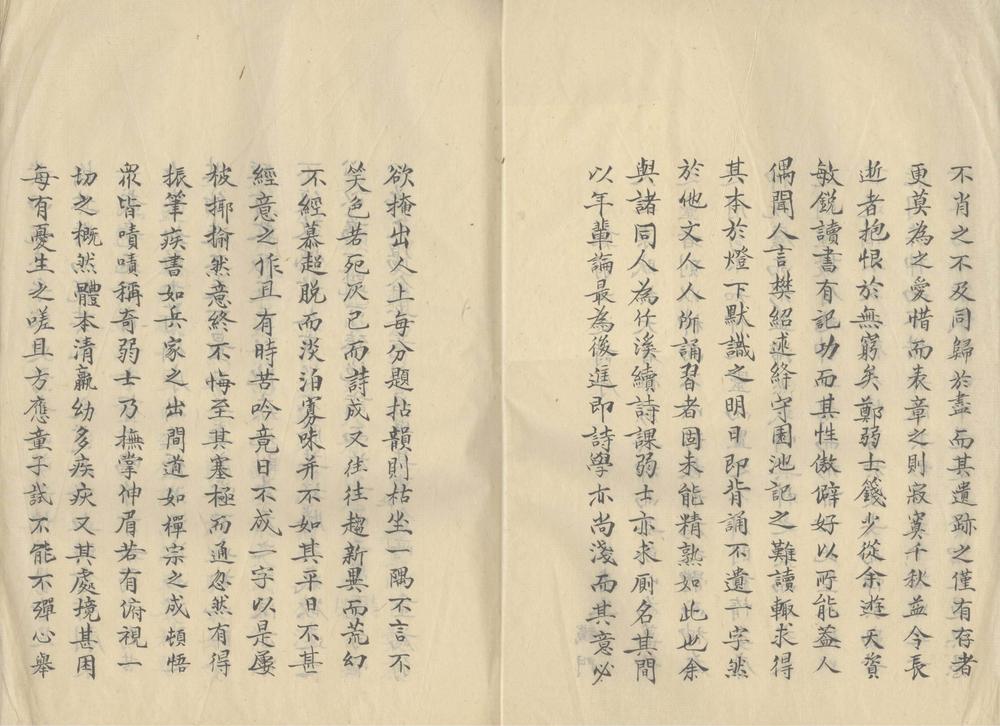 不肖之不及同歸於盡而其遺跡之僅有存者
更莫為之愛惜而表章之則寂寞千秋益令長
逝者抱恨於無窮矣鄭弱士籛少從余遊天資
敏銳讀書有記功而其性傲僻好以所能蓋人
偶聞人言樊紹述絳守園池記之難讀輙求得
其本於燈下默識之明日即背誦不遺一字然
於他文人人所誦習者固未能精熟如此也余
與諸同人為仟溪續詩課弱士亦求廁名其間
以年輩論最為後進即詩學亦尚淺而其意必
欲掩出人上每分題拈韻則枯坐一隅不言不
笑色若死灰已而詩成又往往趨新異而荒幻
不經慕超脫而淡泊寡味并不如其平日不甚
經意之作且有時苦吟竟日不成一字以是屢
被揶揄然意終不悔至其塞極而通忽然有得
振筆疾書如兵家之出間道如禪宗之成頓悟
眾皆嘖嘖稱奇弱士乃撫掌伸眉若有俯視一
切之概然體本清羸幼多疾疢又其處境甚困
每有憂生之嗟且方應童子試不能不殫心舉